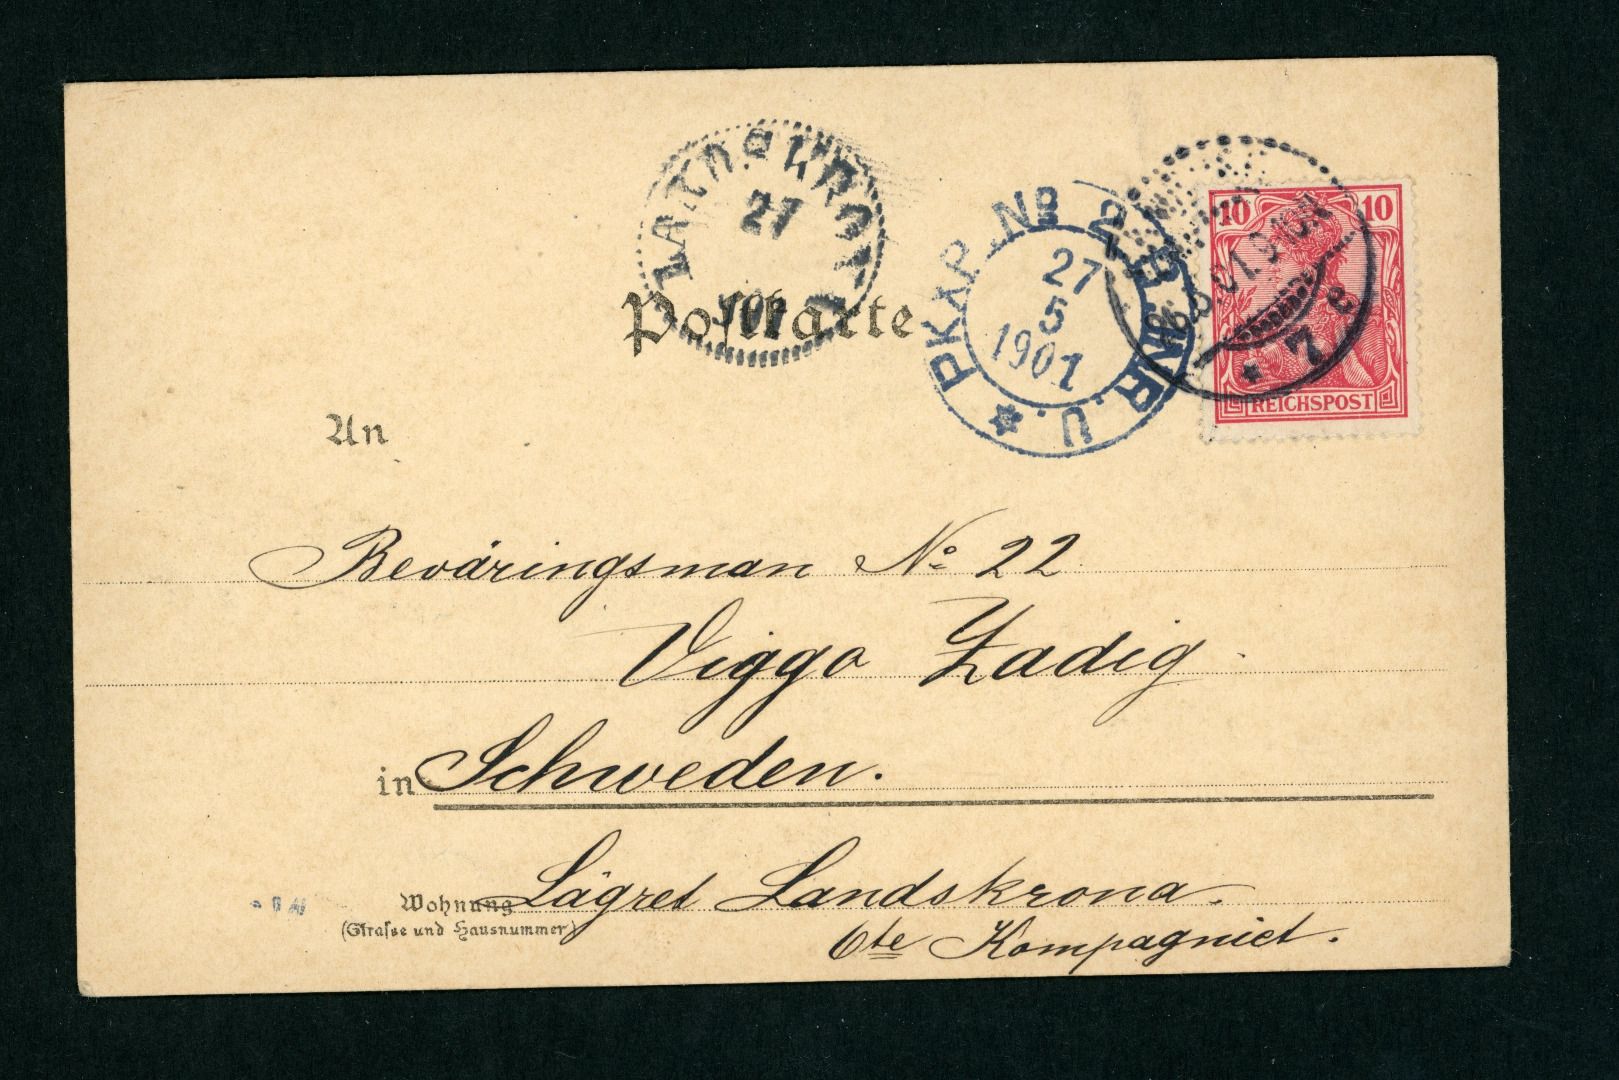 LANDSKRONA
27
1901
PKXP. No 2
27
5
1901
10 10
REICHSPOST
7 e
Postkarte
An
Beväringsman No 22
Viggo Zadig
in Schweden.
Wohnung Lägret Landskrona.
(Strasse und Hausnummer)
6te Kompagniet.